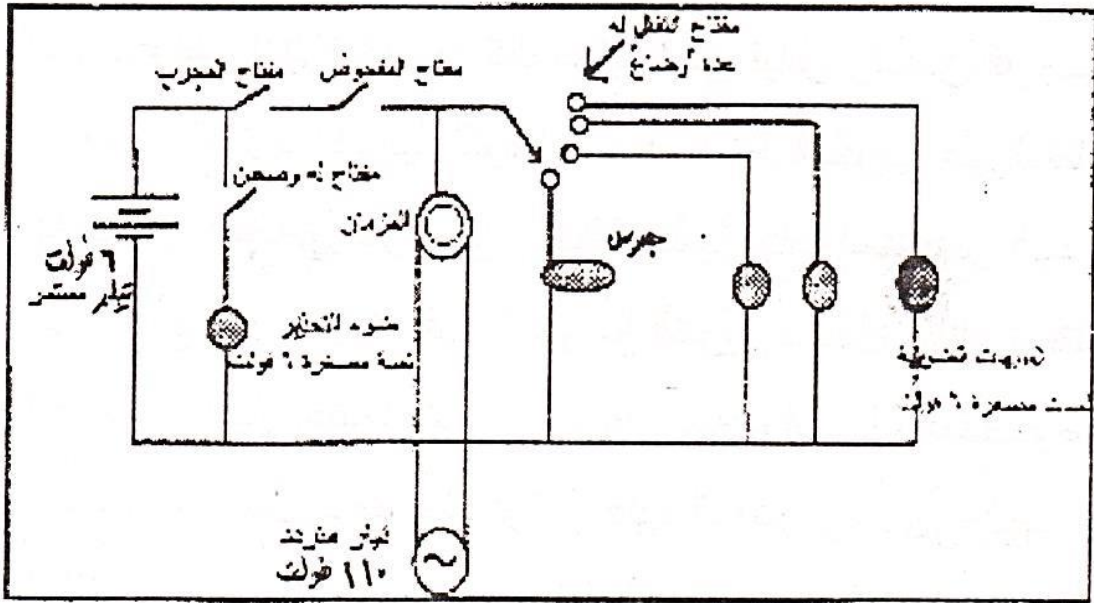 مفتاح تنقل له
عدة أوضاع
مفتاح المفحوص
مفتاح المجرب
مفتاح له وضعين
المزمان
جرس
٦ فولت
تيار مستمر
ضوء التحذير
لمبة مصغرة ٦ فولت
ضوئية
مصغرة ٦ فولت
تيار متردد
١١٠ فولت